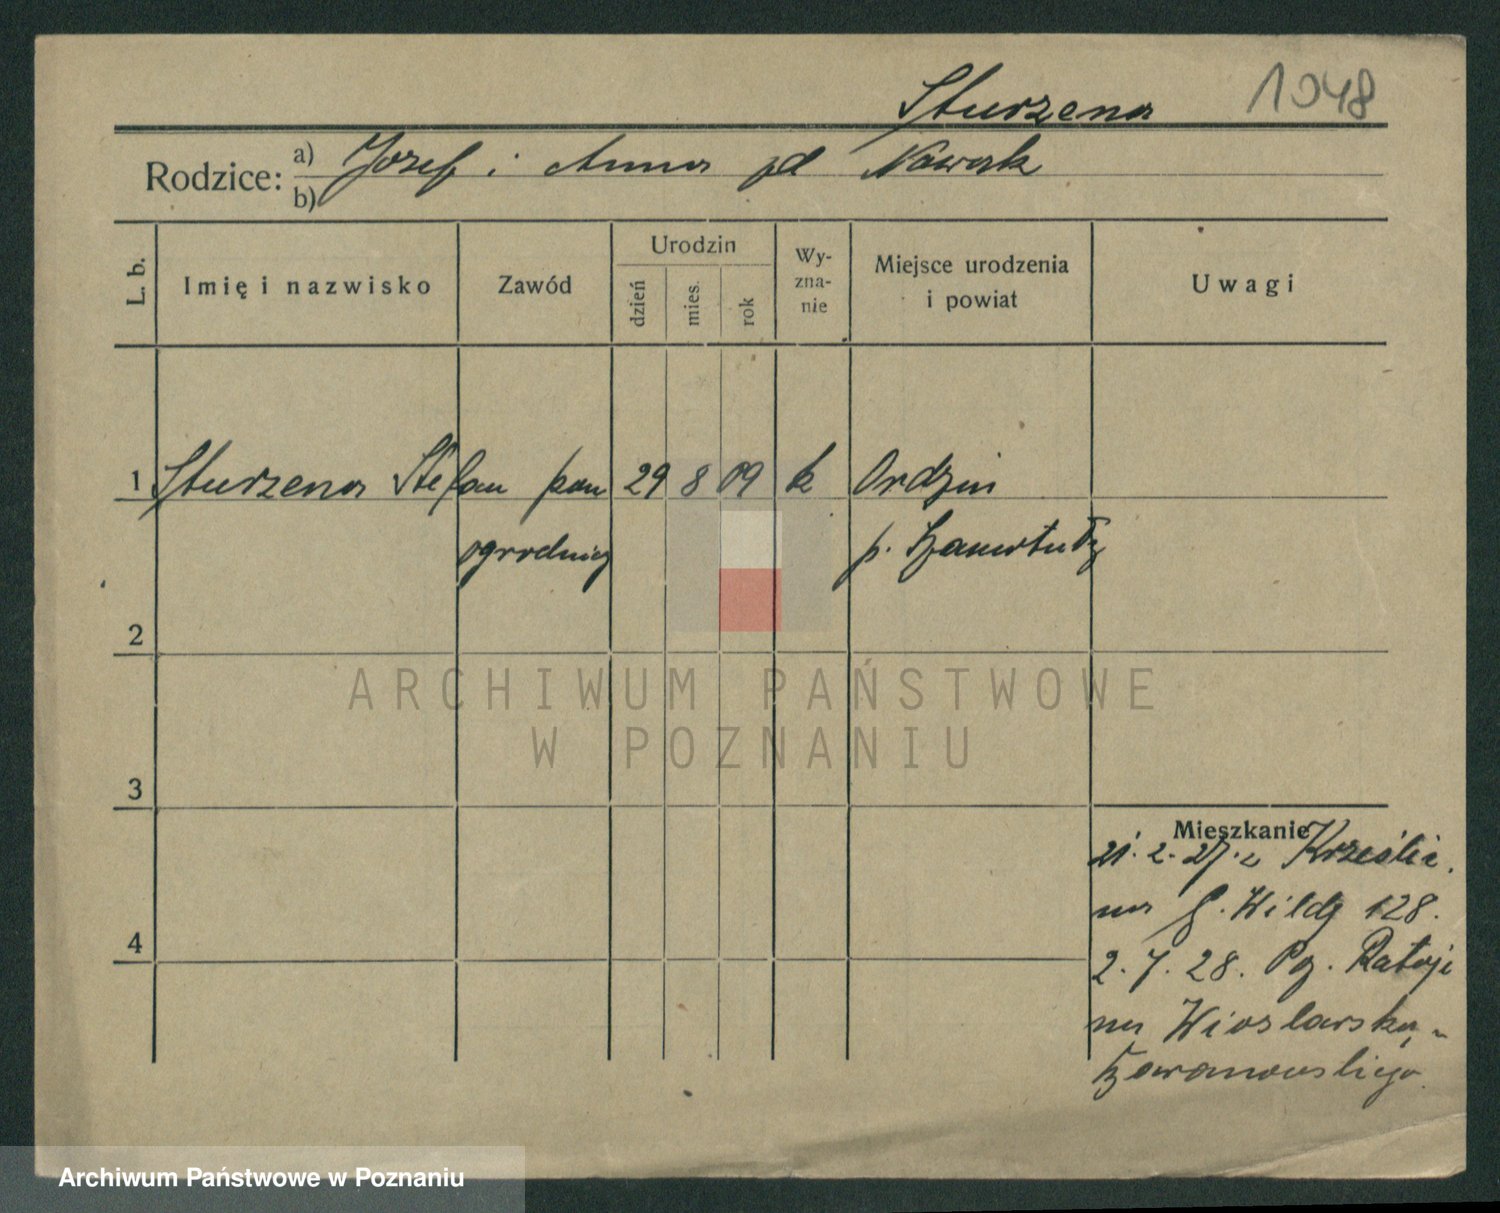 Sturzena 1048
Rodzice: a) Józef i Anna zd Nowak
b)
L. b. Imię i nazwisko Zawód Urodzin dzień mies. rok Wyznanie Miejsce urodzenia i powiat Uwagi
1 Sturzena Stefan pan 29 8 09 k Ordzin
ogrodnicz p. Szamotuły
2
ARCHIWUM PAŃSTWOWE
W POZNANIU
3
Mieszkanie
21. 2. 27. z Krześlic
na G. Wildę 128.
4
2. 7. 28. Pz. Rataje
na Wioślarską
Szaranowskiego
Archiwum Państwowe w Poznaniu